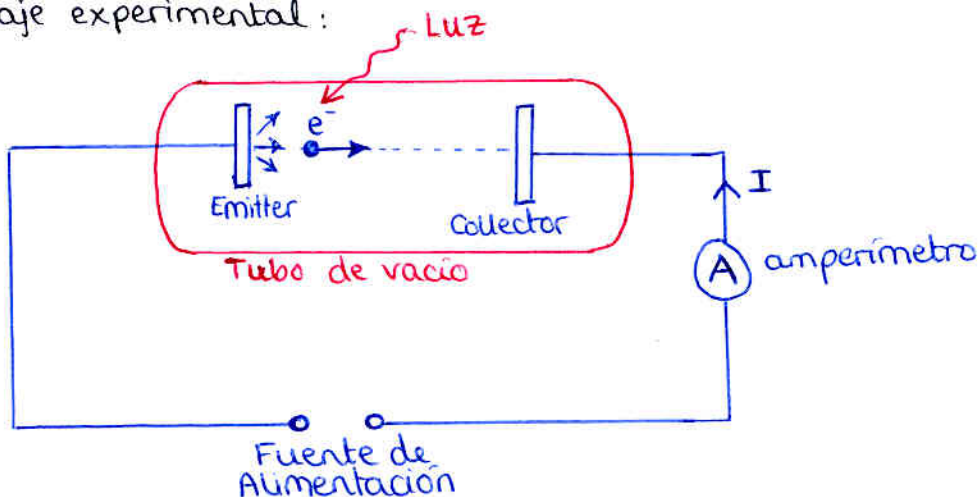 aje experimental:
Luz
e⁻
Emitter
Collector
I
Tubo de vacio
A
amperímetro
Fuente de
Alimentación